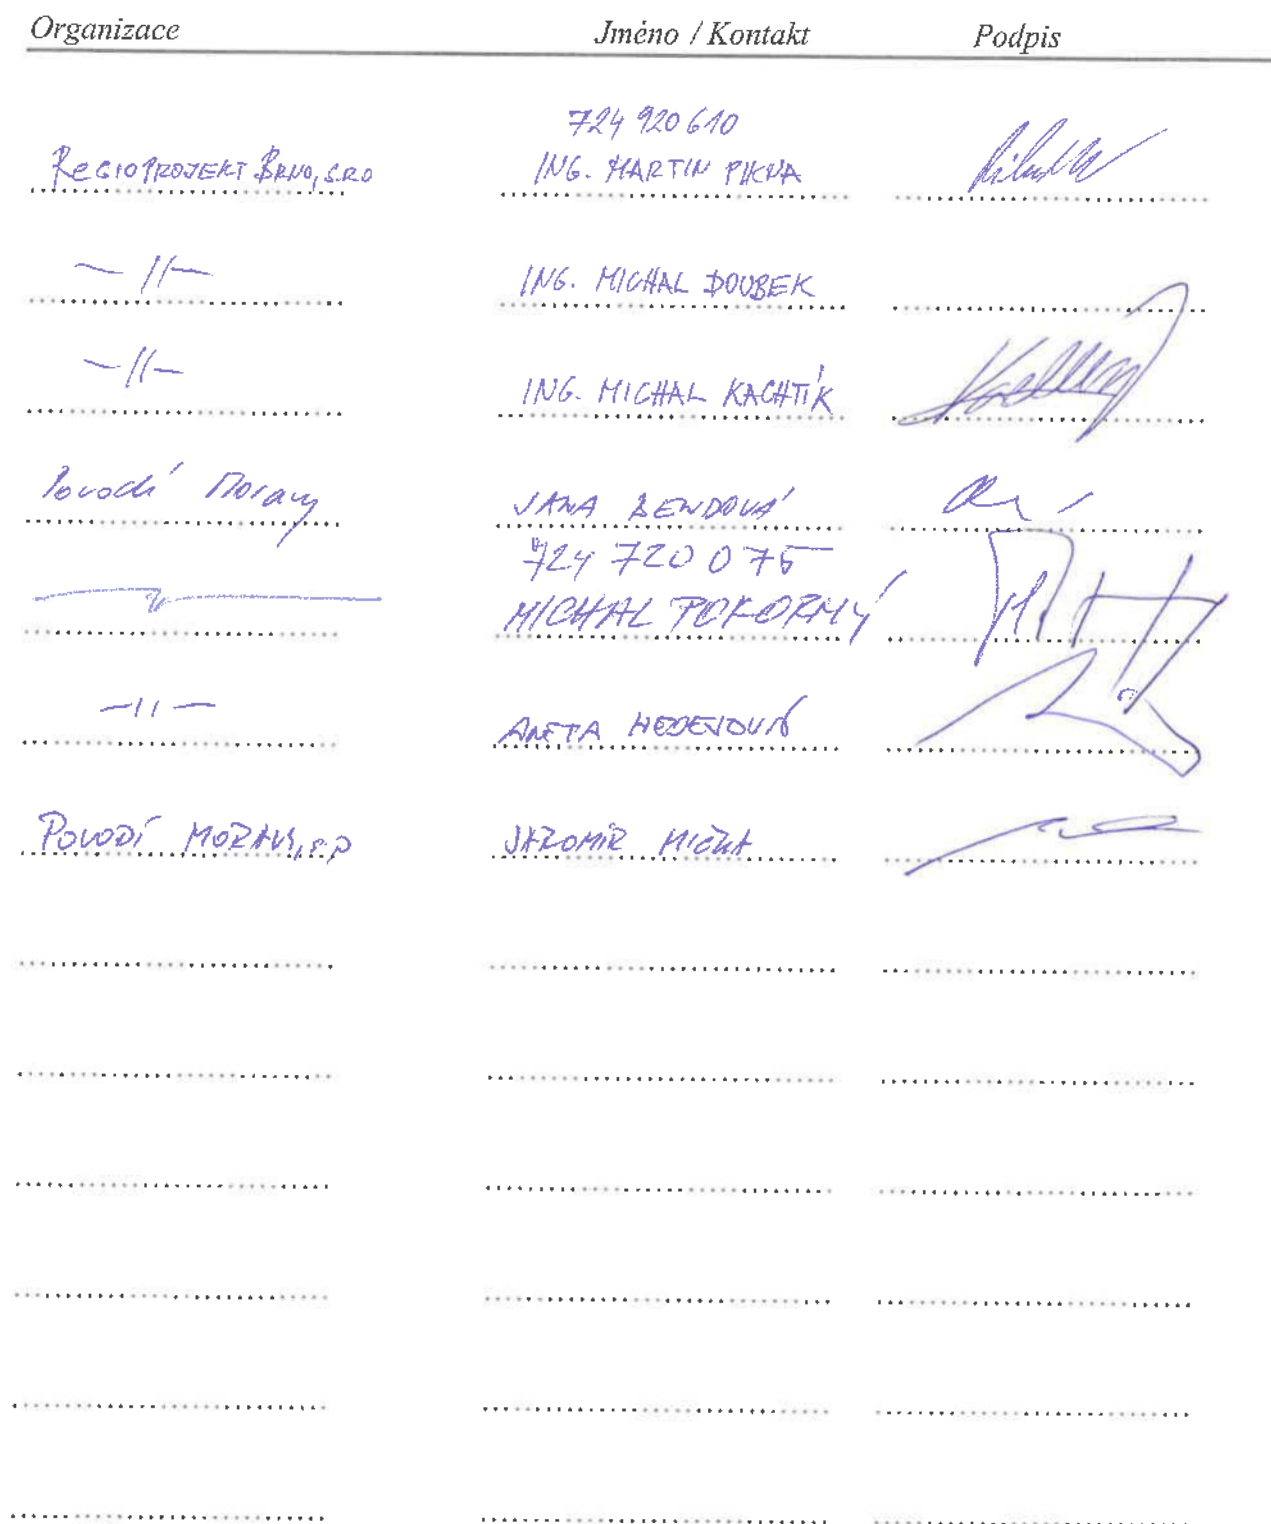 Organizace Jméno / Kontakt Podpis
724 920 610
REGIOPROJEKT BRNO, SRO ING. MARTIN
— // — ING. MICHAL DOUBEK
— // — ING. MICHAL KACHTÍK
Povodí Moravy JANA BENDOVÁ
724 720 075
— " — MICHAL POKORNÝ
— // — ANETA
POVODÍ MORAVY, s.p JAROMÍR MIČKA